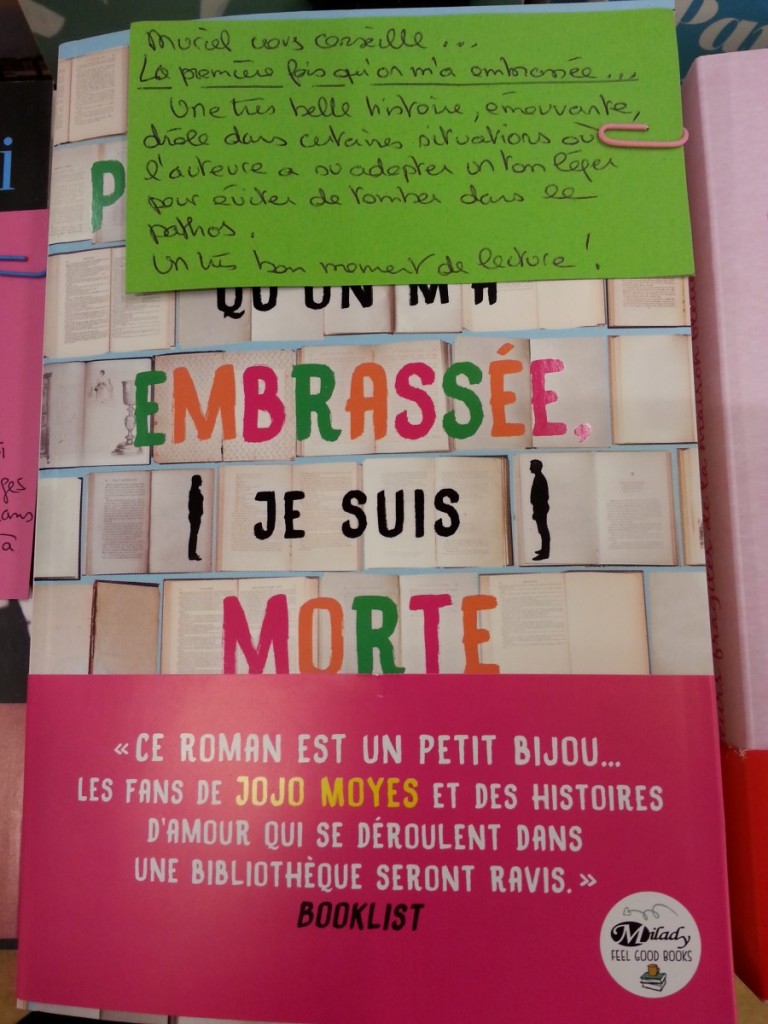 Muriel vous conseille ...
La première fois qu'on m'a embrassée...
Une très belle histoire, émouvante,
drôle dans certaines situations où
l'auteure a su adopter un ton léger
pour éviter de tomber dans le
pathos.
Un très bon moment de lecture !
P
QU'ON M'A
EMBRASSÉE,
JE SUIS
MORTE
« CE ROMAN EST UN PETIT BIJOU...
LES FANS DE JOJO MOYES ET DES HISTOIRES
D'AMOUR QUI SE DÉROULENT DANS
UNE BIBLIOTHÈQUE SERONT RAVIS. »
BOOKLIST
Milady
FEEL GOOD BOOKS
i
ges
ans
à